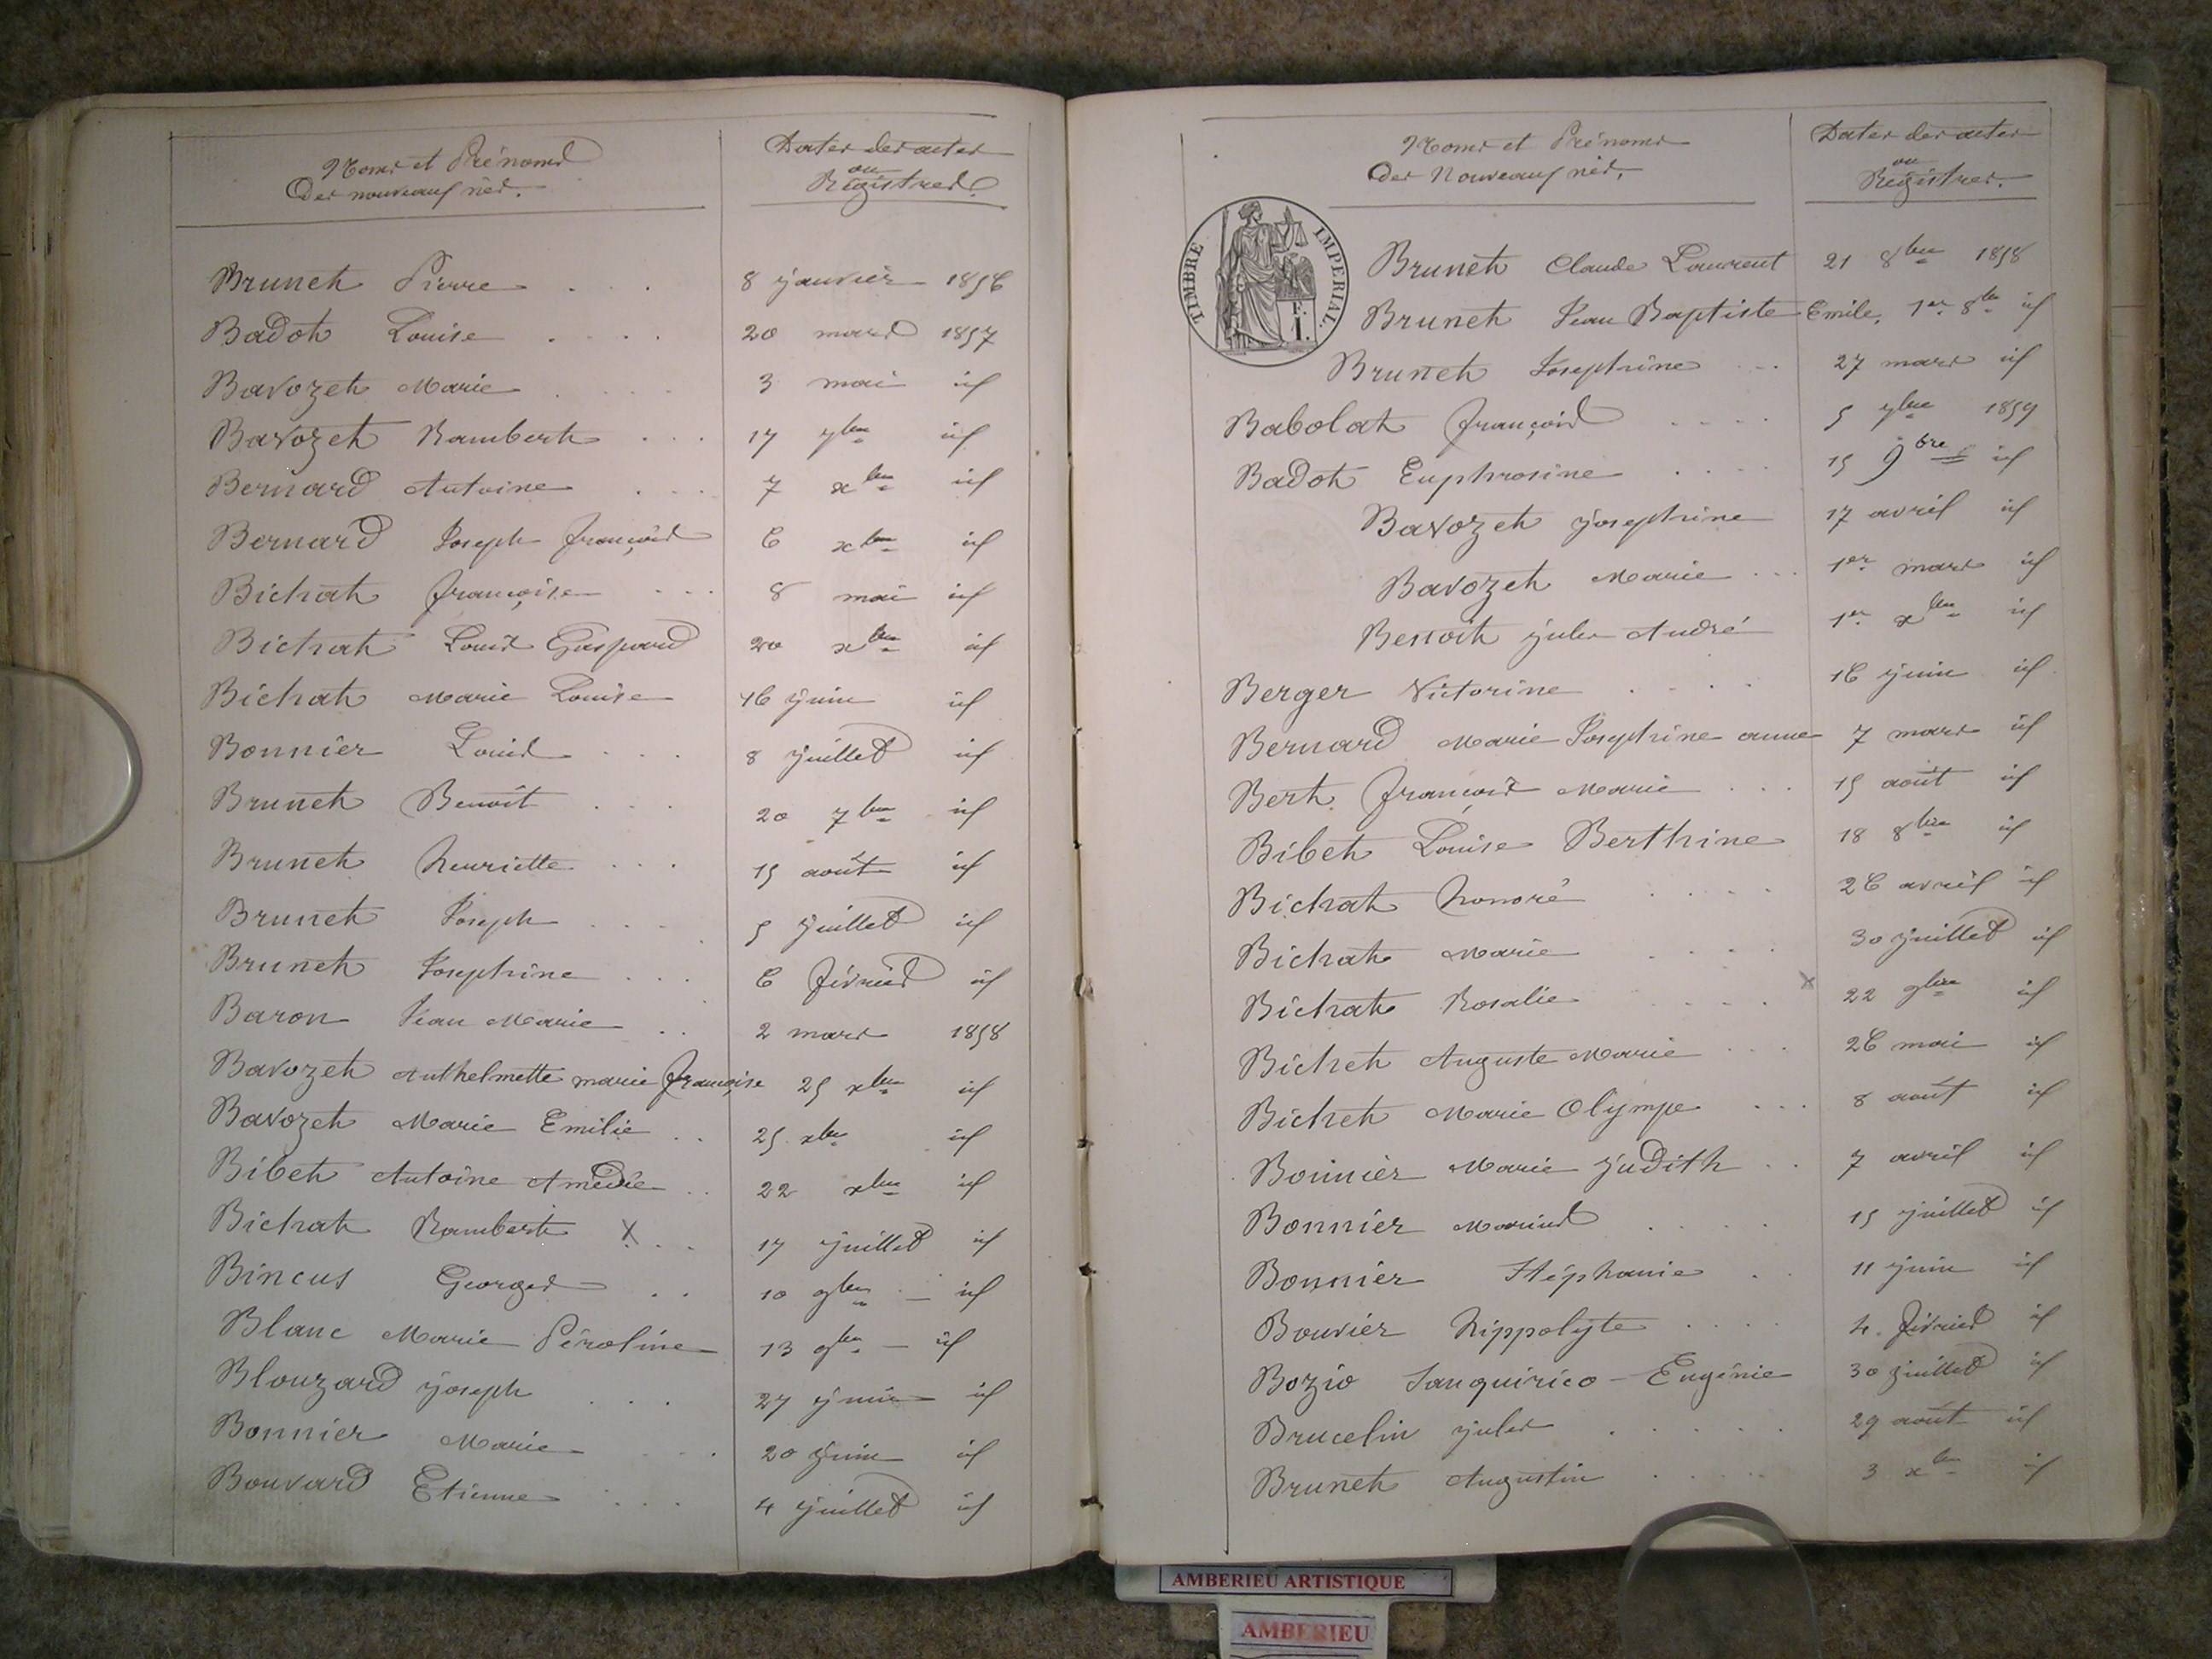 Noms et Prénoms
Des nouveaux nés.
Dates des actes
ou
Registres.
Brunet Pierre . . . 8 janvier 1856
Badot Louise . . . . 20 mars 1857
Bavozet Marie . . . . 3 mai id
Bavozet Rambert . . . 17 7bre id
Bernard Antoine . . . 7 xbre id
Bernard Joseph François 6 xbre id
Bichat Françoise . . . 8 mai id
Bichat Louis Gaspard 20 xbre id
Bichat Marie Louise 16 juin id
Bonnier Louis . . . 8 juillet id
Brunet Benoît . . . 20 7bre id
Brunet henriette . . . 15 août id
Brunet Joseph . . . . 5 juillet id
Brunet Josephine . . . 6 février id
Baron Jean Marie . . 2 mars 1858
Bavozet Anthelmette marie françoise 25 xbre id
Bavozet Marie Emilie . . 25 xbre id
Bibet Antoine Amédée . . 22 xbre id
Bichat Rambert X . . 17 juillet id
Bincus Georges . . 10 9bre — id
Blanc Marie Péroline 13 9bre — id
Blouzard joseph . . . 27 juin id
Bonnier Marie . . 20 juin id
Bouvard Etienne . . . 4 juillet id
Noms et Prénoms
Des Nouveaux nés.
Dates des actes
ou
Registres.
TIMBRE IMPERIAL.
F.
I.
Brunet Claude Laurent 21 8bre 1858
Brunet Jean Baptiste Emile. 1er 8bre id
Brunet Josephine . . . 27 mars id
Babolat François . . . . 5 7bre 1859
Badot Euphrosine . . . . 15 9bre id
Bavozet josephine 17 avril id
Bavozet Marie . . . 1er mars id
Benoit jules André 1er xbre id
Berger Victorine . . . . 16 juin id
Bernard Marie Josephine anne 7 mars id
Bert François Marie . . . 15 août id
Bibet Louise Berthine 18 8bre id
Bichat honoré . . . . 26 avril id
Bichat Marie . . . . 30 juillet id
Bichat Rosalie . . . . x 22 9bre id
Bichet Auguste Marie . . . 26 mai id
Bichet Marie Olympe . . . 8 août id
Bonnier Marie judith . . 7 avril id
Bonnier Marius . . . . 15 juillet id
Bonnier Stéphanie . . 11 juin id
Bouvier hippolyte . . . . 4. février id
Bozio Sanquirico - Eugénie 30 juillet id
Brucelin jules . . . . . 29 août id
Brunet Augustin . . . . 3 xbre id
AMBERIEU ARTISTIQUE
AMBERIEU